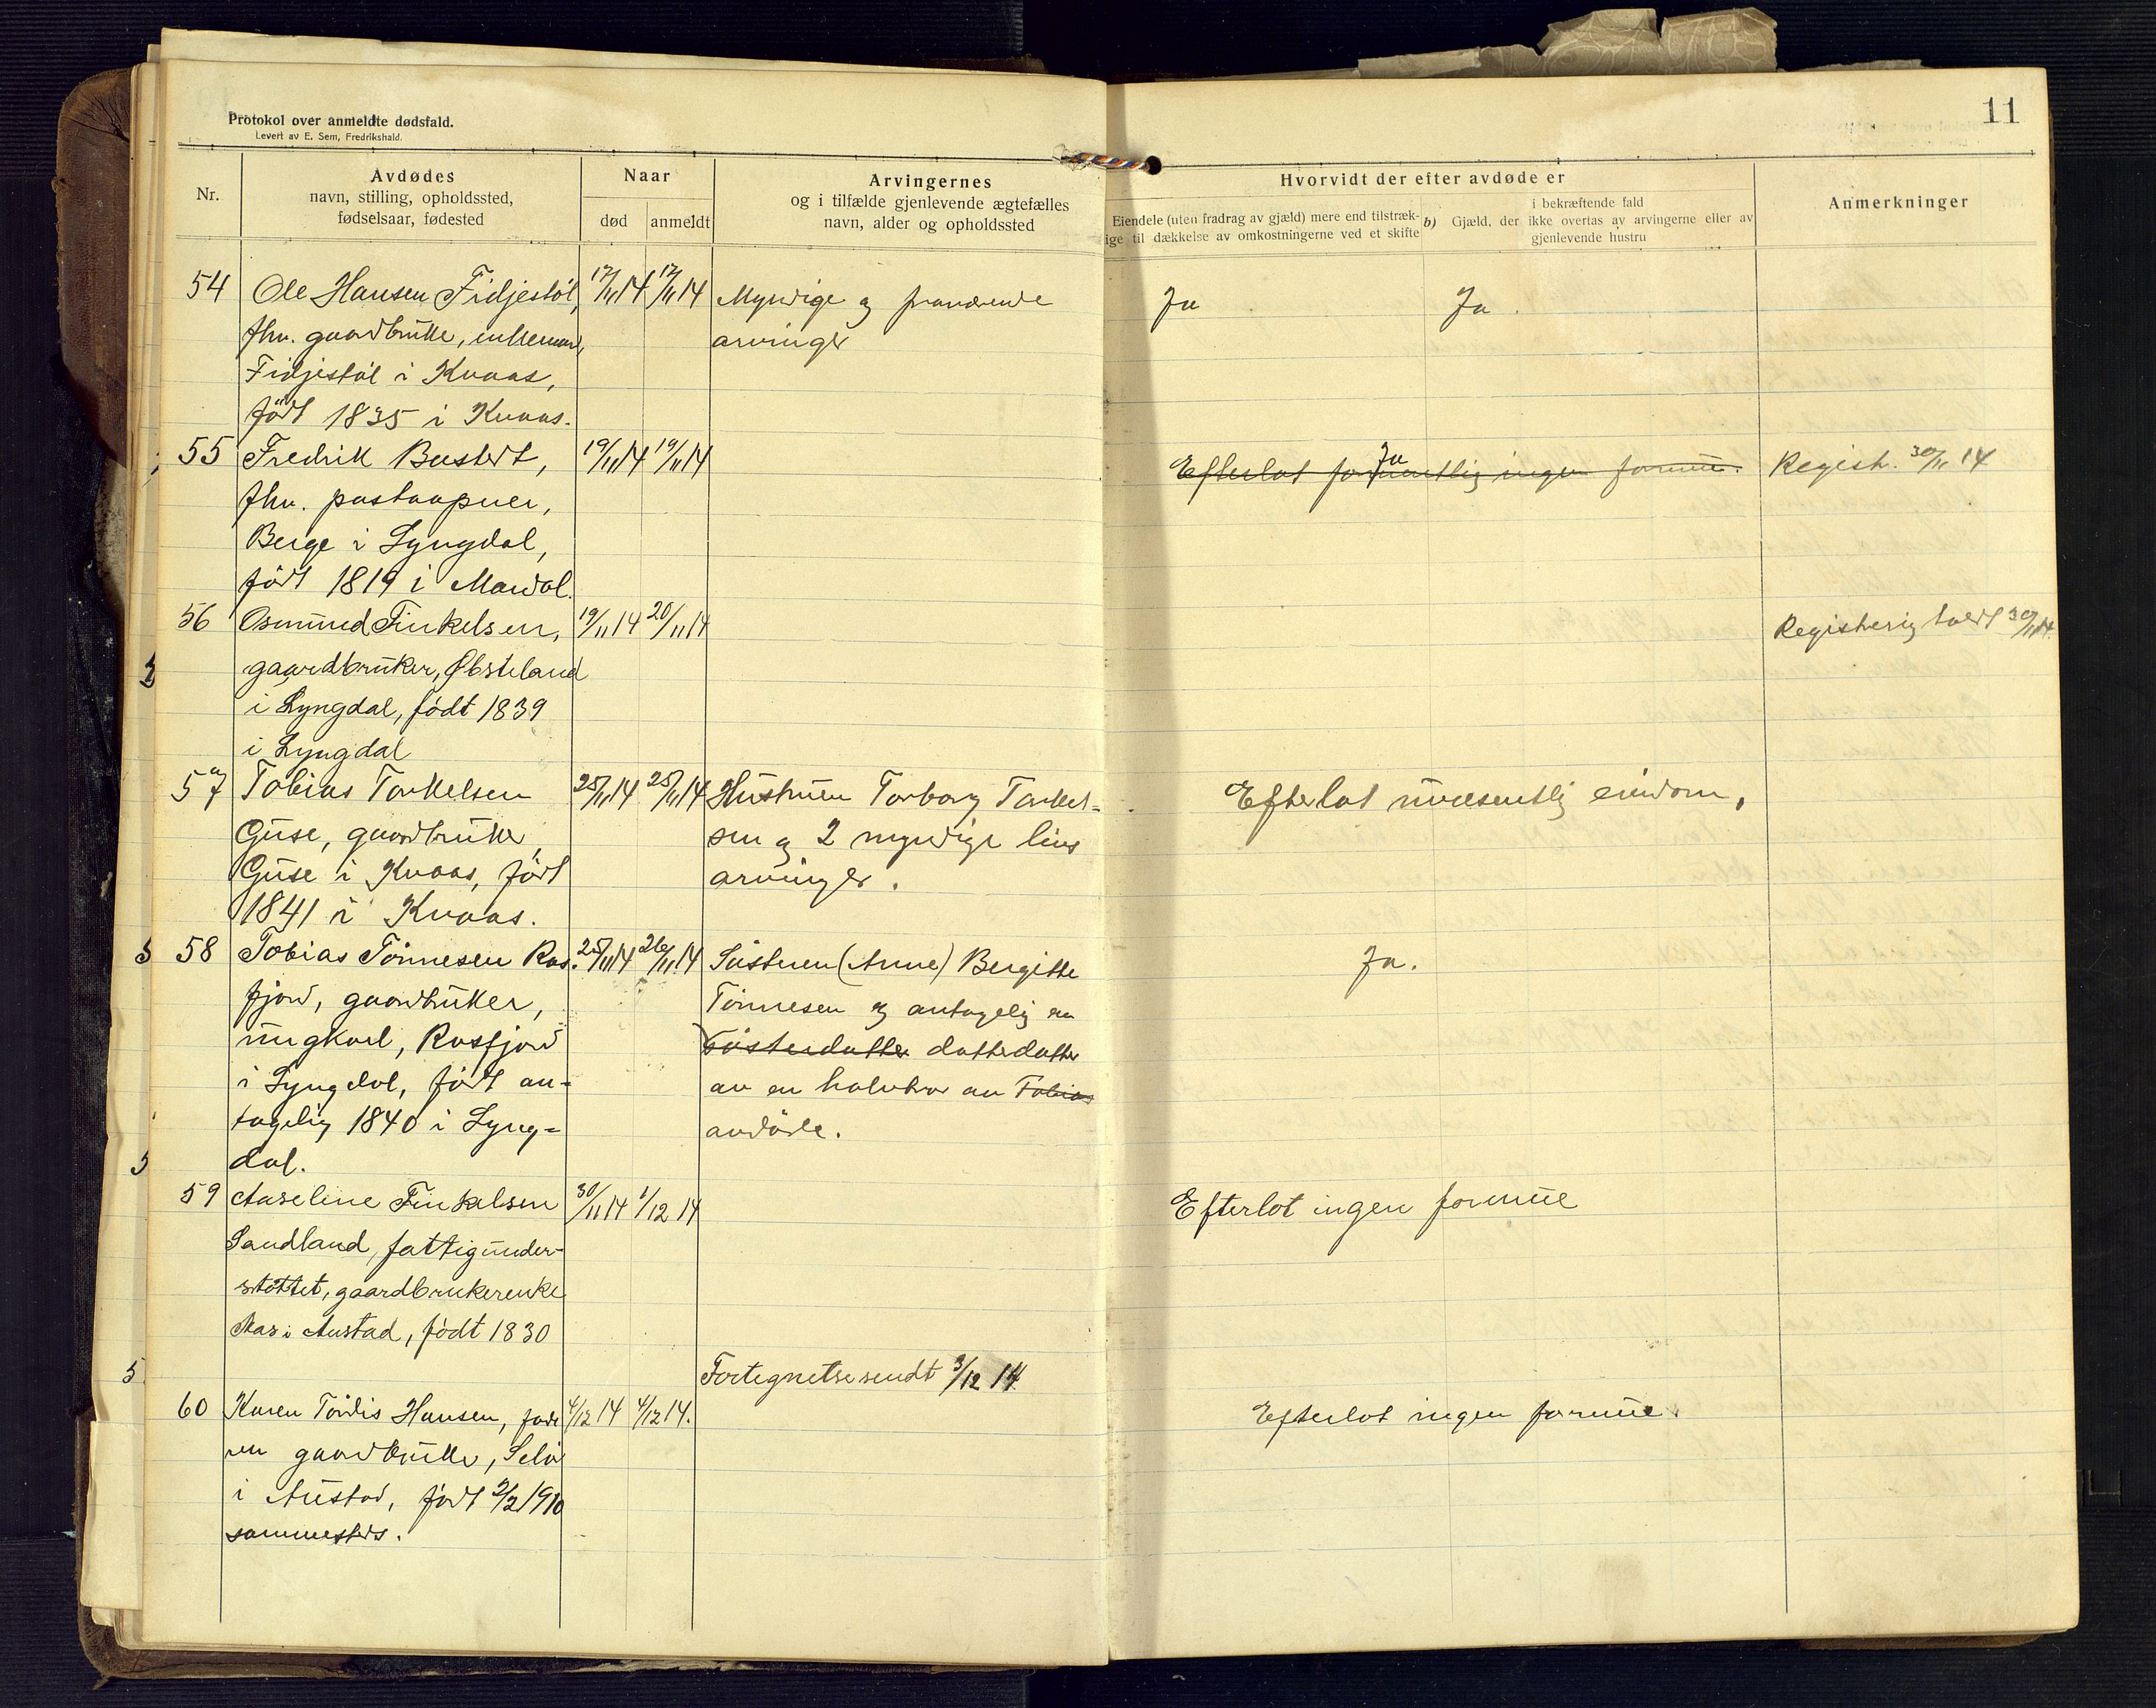 11
Protokol over anmeldte dødsfald.
Levert av E. Sem, Fredrikshald.
Nr.
Avdødes
navn, stilling, opholdssted,
fødselsaar, fødested
Naar
død
anmeldt
Arvingernes
og i tilfælde gjenlevende ægtefælles
navn, alder og opholdssted
Hvorvidt der efter avdøde er
Eiendele (uten fradrag av gjæld) mere end tilstræk-
ige til dækkelse av omkostningerne ved et skifte
b) Gjæld, der
i bekræftende fald
ikke overtas av arvingerne eller av
gjenlevende hustru
Anmerkninger
54 Ole Hansen Fidjestøl, 17/11 14 17/11 14 Myndige og fraværende Ja Ja.
fhv. gaardbruker, enkemand, arvinger
Fidjestøl i Kvaas,
født 1835 i Kvaas.
55 Fredrik Bustert, 19/11 14 19/11 14 Efterlot formentlig ingen formue. Ja Registr. 30/11 14
fhv. postaapner,
Berge i Lyngdal,
født 1819 i Mandal.
56 Osmund Tinkelsen, 19/11 14 20/11 14 Registering holdt 30/11 14.
gaardbruker, Øbsteland
i Lyngdal, født 1839
i Lyngdal
57 Tobias Torkelsen 25/11 14 25/11 14 Hustruen Torborg Torkel- Efterlot uvæsentlig eiendom.
Guse, gaardbruker, sen og 2 myndige livs
Guse i Kvaas, født arvinger.
1841 i Kvaas.
58 Tobias Tönnesen Ros- 25/11 14 26/11 14 Søsteren (Anne) Bergitte Ja.
fjord, gaardbruker, Tönnesen og antagelig en
ungkarl, Rosfjord Søsterdatter datterdatter
i Lyngdal, født an- av en halvbror av Tobias
tagelig 1840 i Lyng- avdøde.
dal.
59 Aaseline Tinkelsen 30/11 14 1/12 14 Efterlot ingen formue
Sandland, fattigunder-
støttet, gaardbrukerenke
i Austad, født 1830
Fortegnelse sendt 3/12 14
60 Karen Tördis Hansen, 4/12 14 4/12 14. Efterlot ingen formue.
gaardbruker, Selør
i Austad, født 2/2 1910
sammesteds.